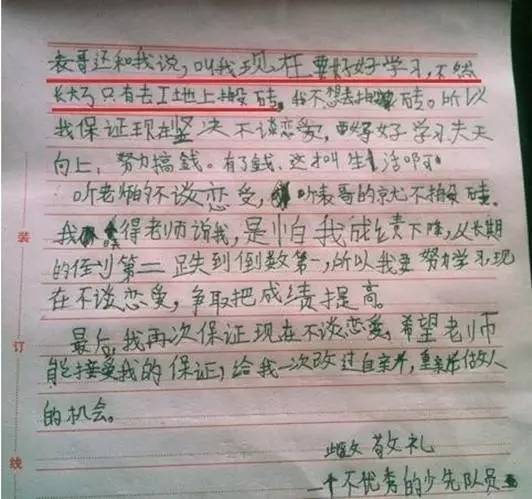 表哥还和我说,叫我现在要好好学习,不然
长大了只有去工地上搬砖。我不想去搬砖。所以
我保证现在坚决不谈恋爱,要好好学习天天
向上,努力搞钱。有了钱,这才叫生活啊
听老师的不谈恋爱,听表哥的就不搬砖。
我得老师说我,是怕我成绩下降,从长期
的倒数第二跌到倒数第一,所以我要努力学习,现
在不谈恋爱,争取把成绩提高。
最后,我再次保证现在不谈恋爱,希望老师
能接受我的保证,给我一次改过自亲斤,重亲斤做人
的机会。
此致 敬礼
一个不优秀的少先队员
装
订
线